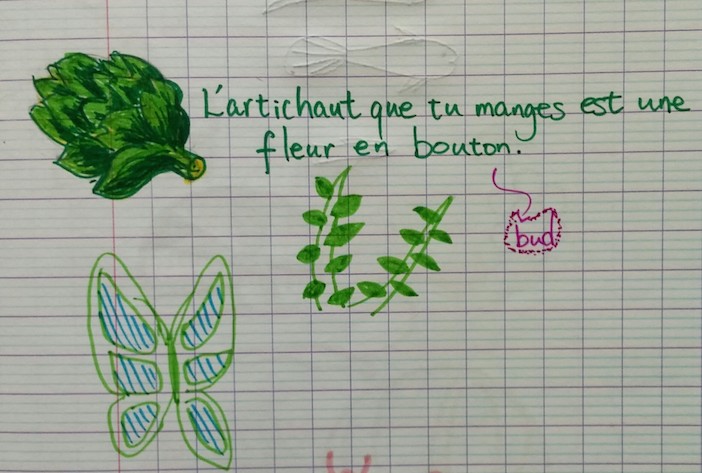 L'artichaut que tu manges est une
fleur en bouton.
bud